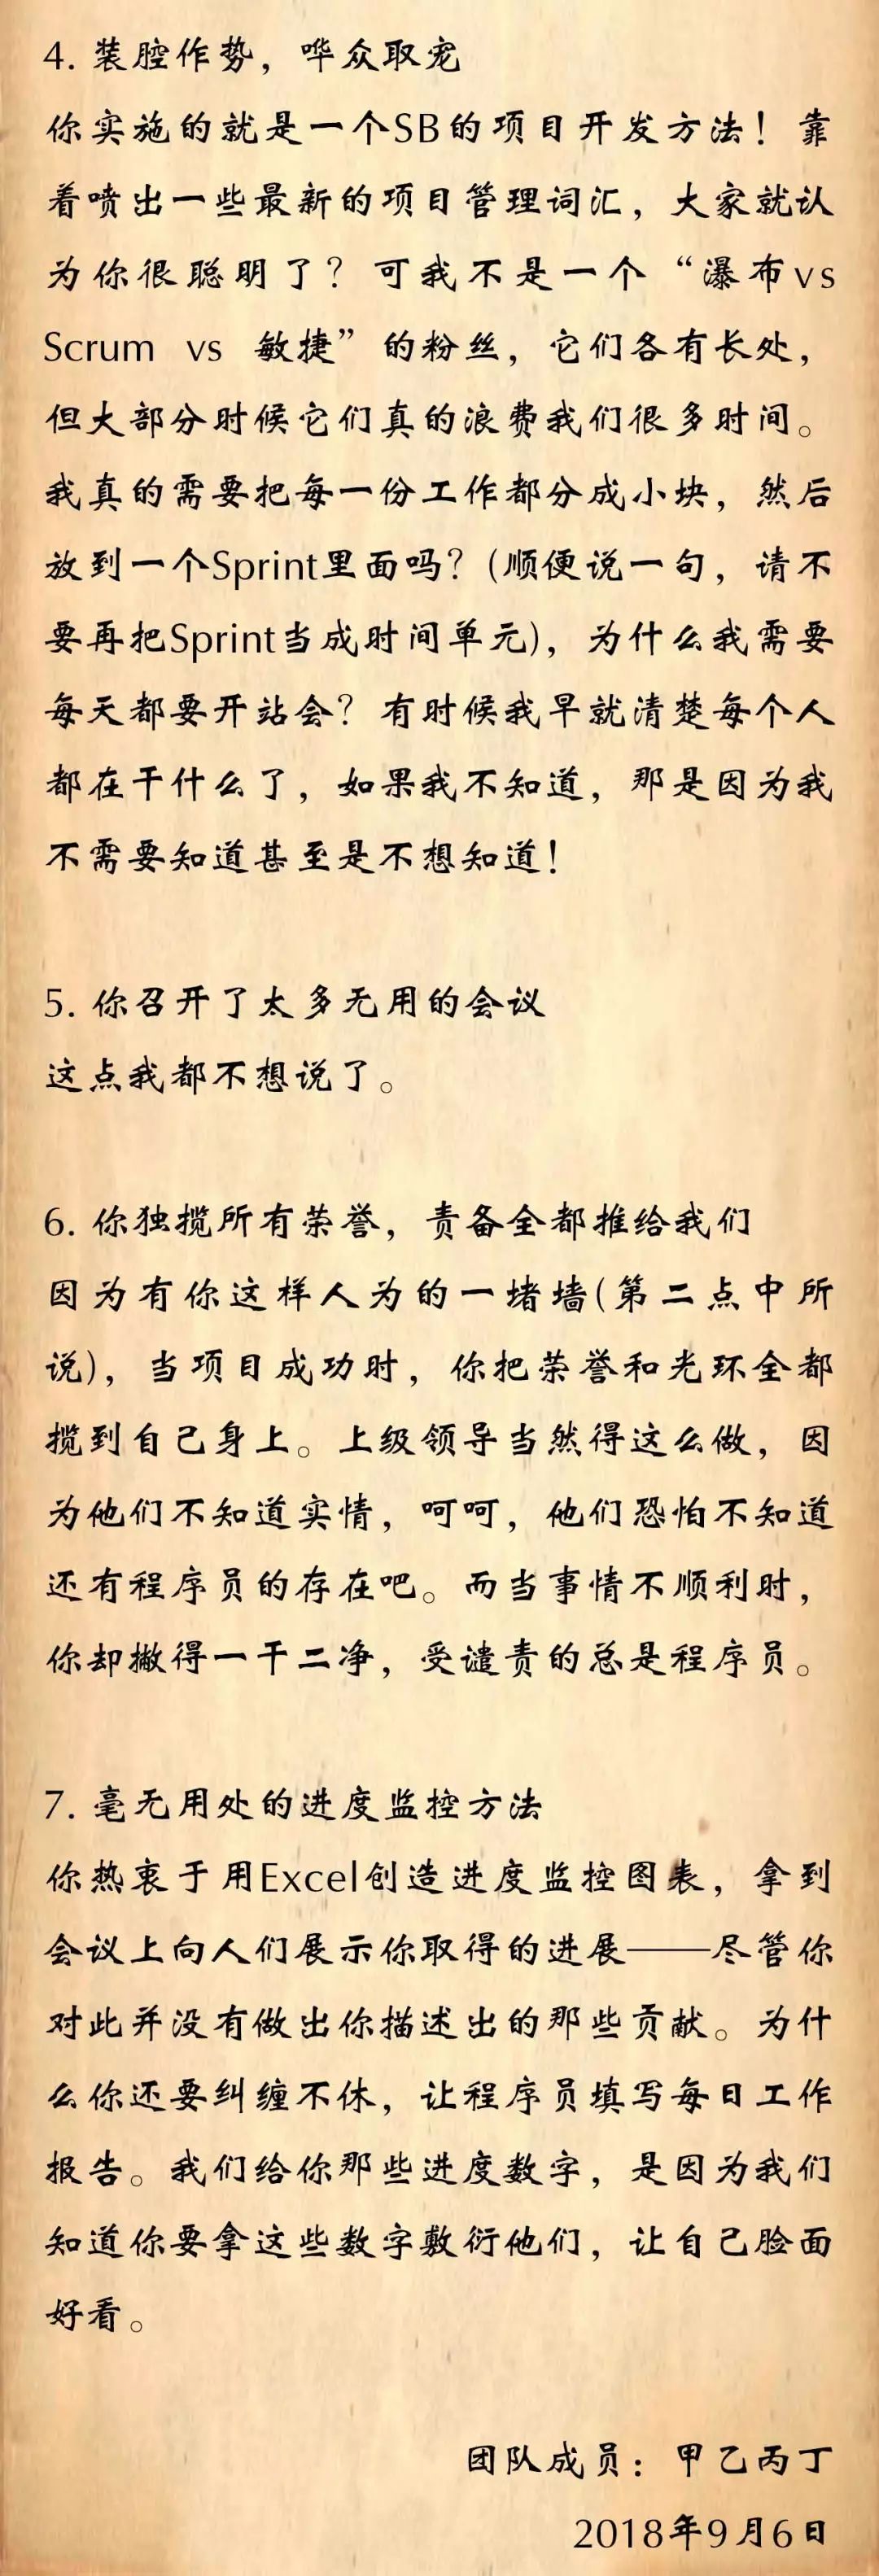 4. 装腔作势，哗众取宠
你实施的就是一个SB的项目开发方法！靠
着喷出一些最新的项目管理词汇，大家就认
为你很聪明了？可我不是一个“瀑布vs
Scrum vs 敏捷”的粉丝，它们各有长处，
但大部分时候它们真的浪费我们很多时间。
我真的需要把每一份工作都分成小块，然后
放到一个Sprint里面吗？(顺便说一句，请不
要再把Sprint当成时间单元)，为什么我需要
每天都要开站会？有时候我早就清楚每个人
都在干什么了，如果我不知道，那是因为我
不需要知道甚至是不想知道！
5. 你召开了太多无用的会议
这点我都不想说了。
6. 你独揽所有荣誉，责备全都推给我们
因为有你这样人为的一堵墙(第二点中所
说)，当项目成功时，你把荣誉和光环全都
揽到自己身上。上级领导当然得这么做，因
为他们不知道实情，呵呵，他们恐怕不知道
还有程序员的存在吧。而当事情不顺利时，
你却撇得一干二净，受谴责的总是程序员。
7. 毫无用处的进度监控方法
你热衷于用Excel创造进度监控图表，拿到
会议上向人们展示你取得的进展——尽管你
对此并没有做出你描述出的那些贡献。为什
么你还要纠缠不休，让程序员填写每日工作
报告。我们给你那些进度数字，是因为我们
知道你要拿这些数字敷衍他们，让自己脸面
好看。
团队成员：甲乙丙丁
2018年9月6日